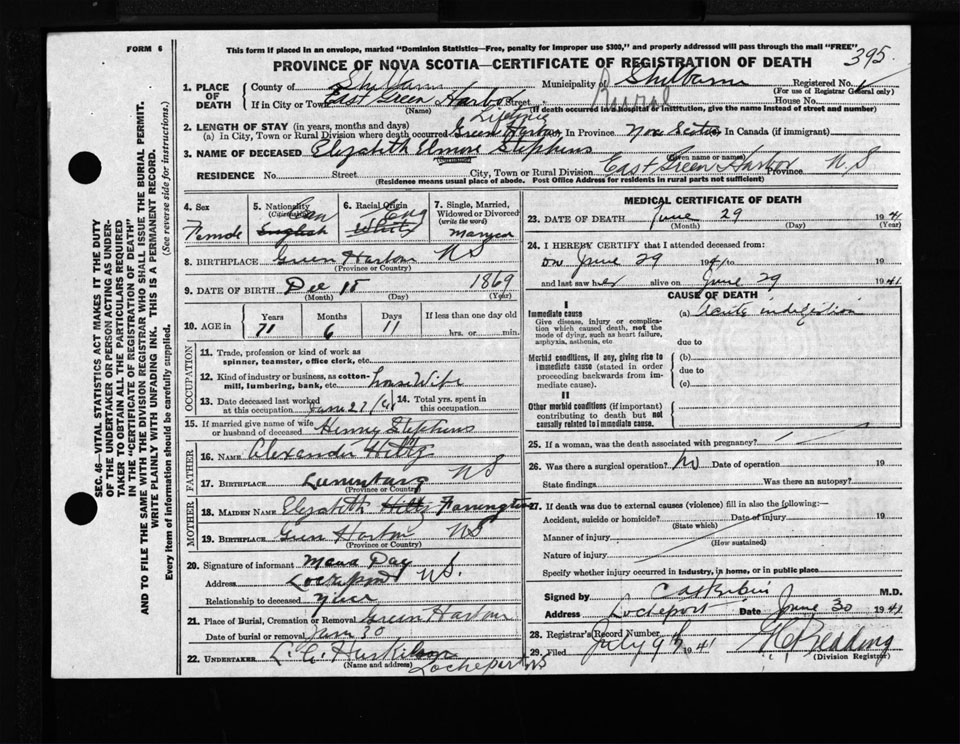 FORM 6
This form if placed in an envelope, marked "Dominion Statistics—Free, penalty for improper use $300," and properly addressed will pass through the mail "FREE"
PROVINCE OF NOVA SCOTIA—CERTIFICATE OF REGISTRATION OF DEATH
395
SEC. 46—VITAL STATISTICS ACT MAKES IT THE DUTY
OF THE UNDERTAKER OR PERSON ACTING AS UNDER-
TAKER TO OBTAIN ALL THE PARTICULARS REQUIRED
IN THE "CERTIFICATE OF REGISTRATION OF DEATH"
AND TO FILE THE SAME WITH THE DIVISION REGISTRAR WHO SHALL ISSUE THE BURIAL PERMIT.
WRITE PLAINLY WITH UNFADING INK. THIS IS A PERMANENT RECORD.
Every item of information should be carefully supplied. (See reverse side for instructions.)
1. PLACE OF DEATH
County of Shelburne Municipality of Shelburne Registered No.
(For use of Registrar General only)
If in City or Town East Green Harbor Street Rural House No.
(Name) (If death occurred in hospital or institution, give name instead of street and number)
2. LENGTH OF STAY (in years, months and days) Lifetime
(a) In City, Town or Rural Division where death occurred Green Harbor In Province Nova Scotia In Canada (if immigrant)
3. NAME OF DECEASED Elizabeth Elmore Stephens
(Given name or names)
RESIDENCE No. Street City, Town or Rural Division East Green Harbor Province N S
(Residence means usual place of abode. Post Office Address for residents in rural parts not sufficient)
4. Sex Female
5. Nationality (Citizenship) Can English
6. Racial Origin Eng White
7. Single, Married, Widowed or Divorced (write the word) Married
8. BIRTHPLACE Green Harbor N S
(Province or Country)
9. DATE OF BIRTH Dec 18 1869
(Month) (Day) (Year)
10. AGE in Years 71 Months 6 Days 11 If less than one day old hrs. or min.
OCCUPATION
11. Trade, profession or kind of work as spinner, teamster, office clerk, etc.
12. Kind of industry or business, as cotton-mill, lumbering, bank, etc. House Wife
13. Date deceased last worked at this occupation June 27/41
14. Total yrs. spent in this occupation
15. If married give name of wife or husband of deceased Henry Stephens
FATHER
16. NAME Alexander Hiltz
17. BIRTHPLACE Lunenburg N S
(Province or Country)
MOTHER
18. MAIDEN NAME Elizabeth Hiltz Farrington
19. BIRTHPLACE Green Harbor N S
(Province or Country)
20. Signature of informant Day
Address Lockeport N S.
Relationship to deceased
21. Place of Burial, Cremation or Removal Green Harbor
Date of burial or removal June 30
22. UNDERTAKER Huskilson
(Name and address) Lockeport N S
MEDICAL CERTIFICATE OF DEATH
23. DATE OF DEATH June 29 1941
(Month) (Day) (Year)
24. I HEREBY CERTIFY that I attended deceased from:
on June 29 1941 to 19
and last saw her alive on June 29 1941
CAUSE OF DEATH
I
Immediate cause
Give disease, injury or complication which caused death, not the mode of dying, such as heart failure, asphyxia, asthenia, etc.
(a) Acute indigestion
due to
Morbid conditions, if any, giving rise to immediate cause (stated in order proceeding backwards from immediate cause).
(b)
due to
(c)
II
Other morbid conditions (if important) contributing to death but not causally related to immediate cause.
25. If a woman, was the death associated with pregnancy?
26. Was there a surgical operation? No Date of operation 19
State findings Was there an autopsy?
27. If death was due to external causes (violence) fill in also the following:
Accident, suicide or homicide? Date of injury 19
(State which)
Manner of injury
(How sustained)
Nature of injury
Specify whether injury occurred in industry, in home, or in public place
Signed by M.D.
Address Lockeport Date June 30 1941
28. Registrar's Record Number
29. Filed July 9th 1941 Reading
(Division Registrar)